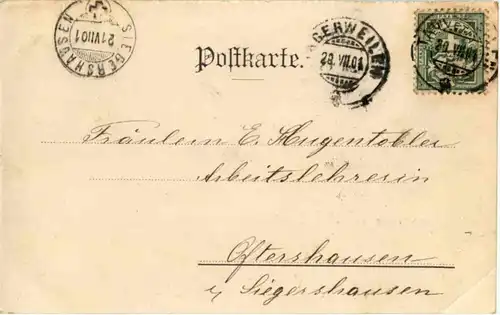 SIEGERSHAUSEN
21 VII 01
Postkarte.
GGERWEILEN
20. VII. 01
20. VII. 01
Fräulein E. Hugentobler
Arbeitslehrerin
Oftershausen
Siegershausen